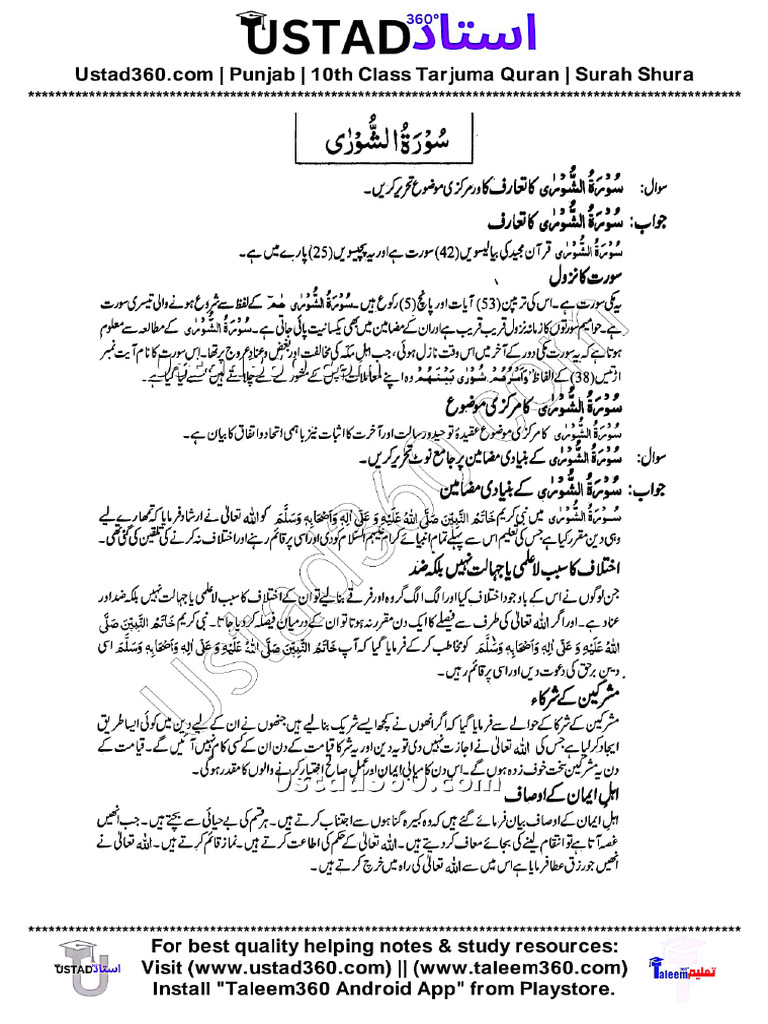 USTAD 360° استاد
Ustad360.com | Punjab | 10th Class Tarjuma Quran | Surah Shura
سُوْرَةُ الشُّوْرٰى
سوال: سُوْرَةُ الشُّوْرٰى کا تعارف کا ور مرکزی موضوع تحریر کریں۔
جواب: سُوْرَةُ الشُّوْرٰى کا تعارف
سُوْرَةُ الشُّوْرٰى قرآن مجید کی بیالیسویں (42) سورت ہے اور یہ پچیسویں (25) پارے میں ہے۔
سورت کا نزول
یہ مکی سورت ہے۔ اس کی ترپین (53) آیات اور پانچ (5) رکوع ہیں۔ سُوْرَةُ الشُّوْرٰى حٰمٓ کے لفظ سے شروع ہونے والی تیسری سورت
ہے۔ حوامیم سورتوں کا زمانہ نزول قریب قریب ہے اور ان کے مضامین میں بھی یکسانیت پائی جاتی ہے۔ سُوْرَةُ الشُّوْرٰى کے مطالعہ سے معلوم
ہوتا ہے کہ یہ سورت مکی دور کے آخر میں اس وقت نازل ہوئی، جب اہلِ مکہ کی مخالفت اور بغض و عناد عروج پر تھا۔ اس سورت کا نام آیت نمبر
اڑتیس (38) کے الفاظ وَاَمْرُهُمْ شُوْرٰى بَيْنَهُمْ وہ اپنے معاملات آپس کے مشورے سے چلاتے ہیں سے لیا گیا ہے۔
سُوْرَةُ الشُّوْرٰى کا مرکزی موضوع
سُوْرَةُ الشُّوْرٰى کا مرکزی موضوع عقیدۂ توحید و رسالت اور آخرت کا اثبات نیز باہمی اتحاد و اتفاق کا بیان ہے۔
سوال: سُوْرَةُ الشُّوْرٰى کے بنیادی مضامین پر جامع نوٹ تحریر کریں۔
جواب: سُوْرَةُ الشُّوْرٰى کے بنیادی مضامین
سُوْرَةُ الشُّوْرٰى میں نبی کریم خَاتَمُ النَّبِيّٖنَ صَلَّى اللهُ عَلَيْهِ وَ عَلٰى اٰلِهٖ وَاَصْحَابِهٖ وَسَلَّمَ کو اللہ تعالیٰ نے ارشاد فرمایا کہ تمھارے لیے
وہی دین مقرر کیا ہے جس کی تعلیم اس سے پہلے تمام انبیائے کرام علیہم السلام کو دی اور اسی پر قائم رہنے اور اختلاف نہ کرنے کی تلقین کی گئی تھی۔
اختلاف کا سبب لاعلمی یا جہالت نہیں بلکہ ضد
جن لوگوں نے اس کے باوجود اختلاف کیا اور الگ الگ گروہ اور فرقے بنا لیے تو ان کے اختلاف کا سبب لاعلمی یا جہالت نہیں بلکہ ضد اور
عناد ہے۔ اور اگر اللہ تعالیٰ کی طرف سے فیصلے کا ایک دن مقرر نہ ہوتا تو ان کے درمیان فیصلہ کر دیا جاتا۔ نبی کریم خَاتَمُ النَّبِيّٖنَ صَلَّى
اللهُ عَلَيْهِ وَ عَلٰى اٰلِهٖ وَاَصْحَابِهٖ وَسَلَّمَ کو مخاطب کر کے فرمایا گیا کہ آپ خَاتَمُ النَّبِيّٖنَ صَلَّى اللهُ عَلَيْهِ وَ عَلٰى اٰلِهٖ وَاَصْحَابِهٖ وَسَلَّمَ اسی
دینِ برحق کی دعوت دیں اور اسی پر قائم رہیں۔
مشرکین کے شرکاء
مشرکین کے شرکا کے حوالے سے فرمایا گیا کہ اگر انھوں نے کچھ ایسے شریک بنا لیے ہیں جنھوں نے ان کے لیے دین میں کوئی ایسا طریق
ایجاد کر لیا ہے جس کی اللہ تعالیٰ نے اجازت نہیں دی تو یہ دین اور یہ شرکا قیامت کے دن ان کے کسی کام نہیں آئیں گے۔ قیامت کے
دن یہ مشرکین سخت خوف زدہ ہوں گے۔ اس دن کامیابی ایمان اور عملِ صالح اختیار کرنے والوں کا مقدر ہوگی۔
اہلِ ایمان کے اوصاف
اہلِ ایمان کے اوصاف بیان فرمائے گئے ہیں کہ وہ کبیرہ گناہوں سے اجتناب کرتے ہیں۔ ہر قسم کی بے حیائی سے بچتے ہیں۔ جب انھیں
غصہ آتا ہے تو انتقام لینے کی بجائے معاف کر دیتے ہیں۔ اللہ تعالیٰ کے حکم کی اطاعت کرتے ہیں۔ نماز قائم کرتے ہیں۔ اللہ تعالیٰ نے
انھیں جو رزق عطا فرمایا ہے اس میں سے اللہ تعالیٰ کی راہ میں خرچ کرتے ہیں۔
Ustad360.com
Ustad360.com
For best quality helping notes & study resources:
Visit (www.ustad360.com) || (www.taleem360.com)
Install "Taleem360 Android App" from Playstore.
USTAD استاد
Taleem تعلیم